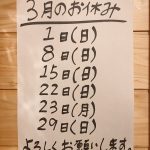 3月のお休み
1日(日)
8日(日)
15日(日)
22日(日)
23日(月)
29日(日)
よろしくお願いします。